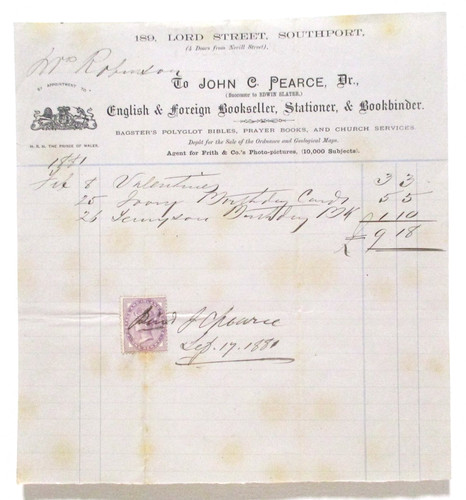 189, LORD STREET, SOUTHPORT,
(4 Doors from Nevill Street),
Robinson
BY APPOINTMENT TO
To JOHN C. PEARCE, Dr.,
(Successor to EDWIN SLATER,)
English & Foreign Bookseller, Stationer, & Bookbinder.
H.R.H. THE PRINCE OF WALES.
BAGSTER'S POLYGLOT BIBLES, PRAYER BOOKS, AND CHURCH SERVICES.
Depôt for the Sale of the Ordnance and Geological Maps.
Agent for Frith & Co.'s Photo-pictures, (10,000 Subjects).
1881
Feb 8 Valentines 3 3
25 Ivory Birthday Cards 5 5
26 Tennyson Birthday Bk 1 10
£ 9 18
J C Pearce
Sep. 17. 1881